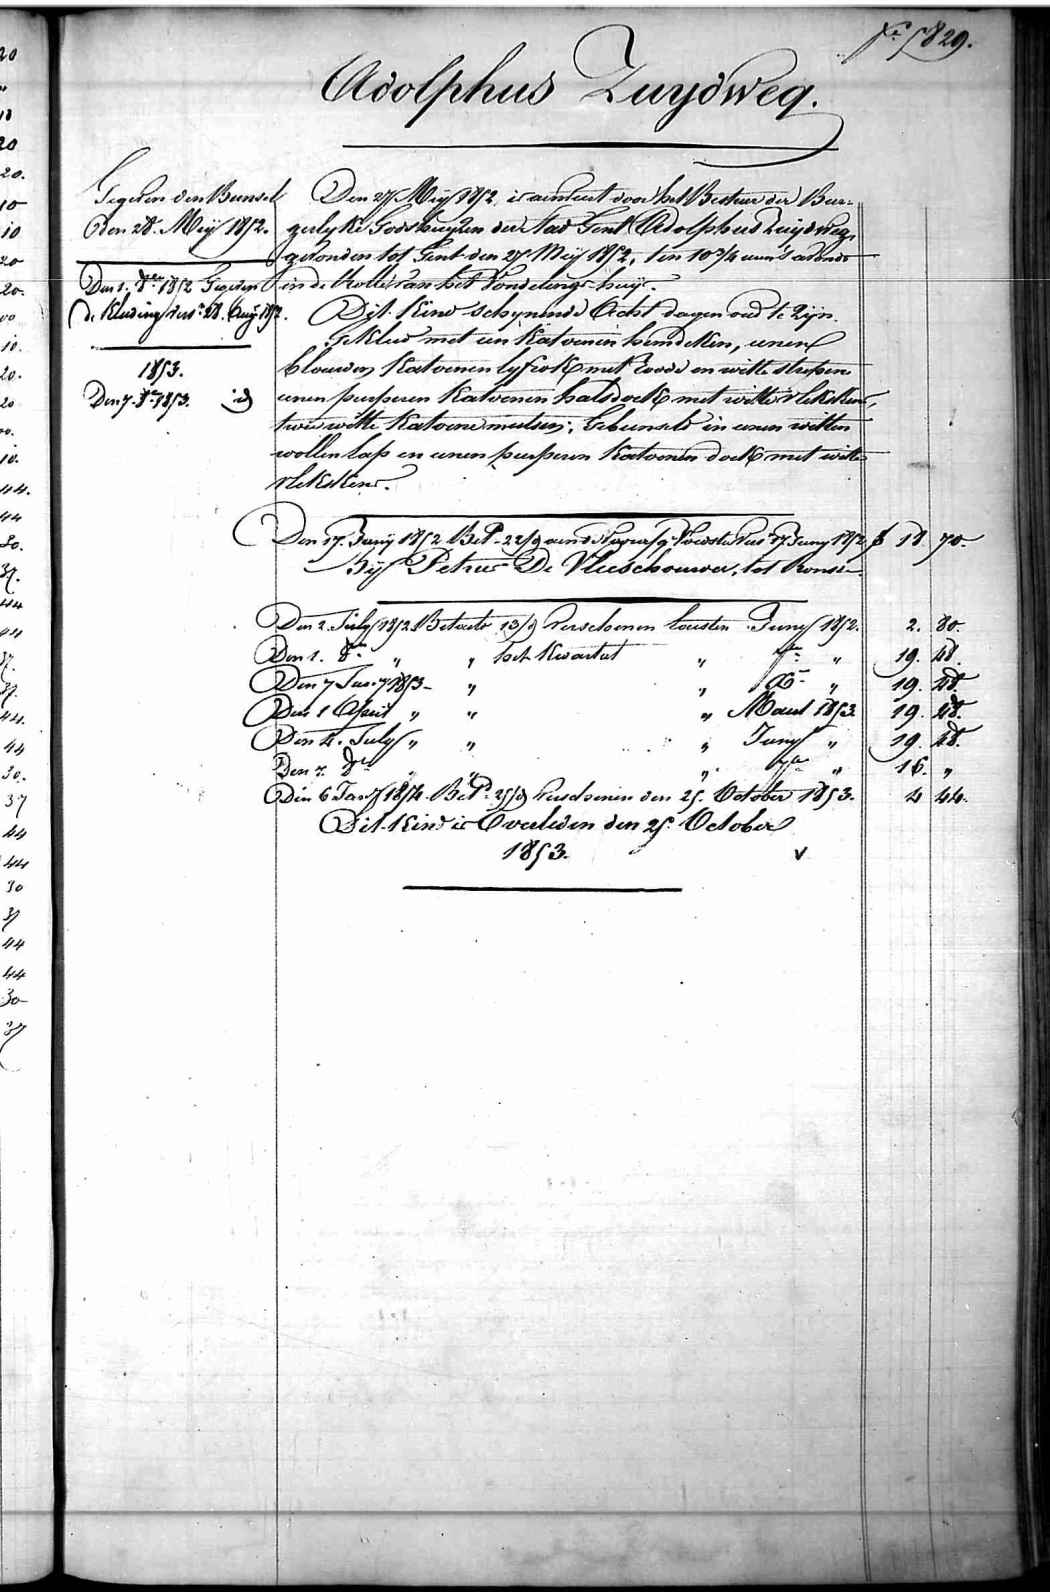 Nº 5829.
Adolphus Zuydweg.
Gegeven den Bunsel
Den 28. Meÿ 1852.
Den 1. 8ber 1852 Gegeven
de Kleeding vers. 28. Aug 1852.
1853.
Den 7. 8ber 1853. id
Den 27 Meÿ 1852, is aenveert door het Bestuer der Bur=
gerlyke Godshuyzen der Stad Gent Adolphus Zuydweg,
gevonden tot Gent den 27 Meÿ 1852, ten 10 3/4 uren 's avonds
in de Rolle van het Vondelings-huys.
Dit Kind schynende Acht dagen oud te Zyn.
Gekleed met een Katoenen hemdeken, eenen
blauwen Katoenen lyfrok met Roode en witte strepen
eenen purperen Katoenen halsdoek met witte vlekskens,
twee witte Katoene mutsen; Gebunseld in eenen witten
wollen lap en eenen purperen Katoenen doek met witte
vlekskens.
Den 17. Juny 1852 Bet. 22/9 aen de Voedster van 17 Juny 1852 f 18 70.
Bÿ Petrus De Vleeschouwer, tot Ronse.
Den 2. July 1852 Betaeld 13/9 Verschenen laesten Juny 1852. 2. 80.
Den 1. 8er „ „ het Kwartael „ 7er „ 19. 48.
Den 7 Jany 1853 „ „ Xer „ 19. 48.
Den 1 April „ „ „ Maert 1853 19. 48.
Den 4. July „ „ „ Juny „ 19. 48.
Den 7. 8er „ „ „ 7er „ 16. „
Den 6 Jany 1854 Bet. 25/9 Verschenen den 25. October 1853. 4 44.
Dit Kind is Overleden den 25. October
1853. v